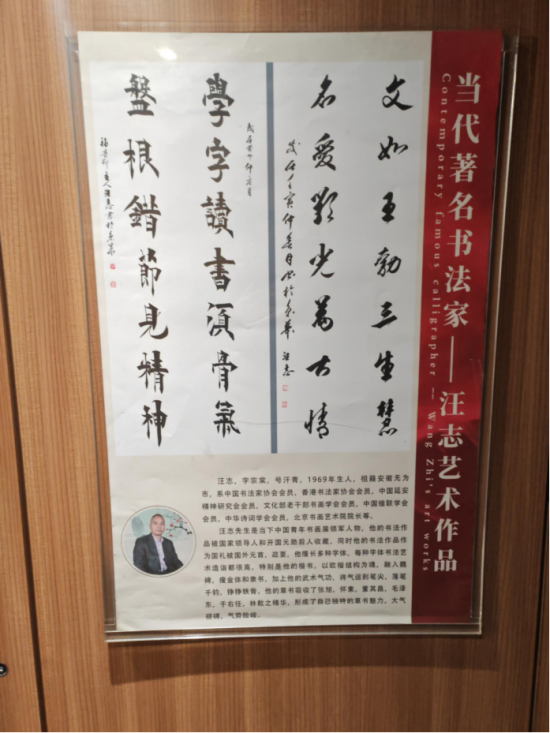 当代著名书法家——汪志艺术作品
Contemporary famous calligrapher — Wang Zhi's art works
文如王勃三生慧
名爱
光万古情
學字讀書須骨氣
盤根錯節見精神
汪志，字宗棠，号汗青，1969年生人，祖籍安徽无为
市，系中国书法家协会会员，香港书法家协会会员，中国延安
精神研究会会员，文化部老干部书画学会会员，中国楹联学会
会员，中华诗词学会会员，北京书画艺术院院长等。
汪志先生是当下中国青年书画届领军人物，他的书法作
品被国家领导人和开国元勋后人收藏，同时他的书法作品作
为国礼被国外元首、政要，他擅长多种字体，每种字体书法艺
术造诣都很高，特别是他的楷书，以欧楷结构为魂，融入魏
碑、瘦金体和隶书，加上他的武术气功，将气运到笔尖，落笔
千钧，铮铮铁骨，他的草书吸收了张旭、怀素、董其昌、毛泽
东、于右任、林散之精华，形成了自己独特的草书魅力，大气
磅礴，气势恢宏。